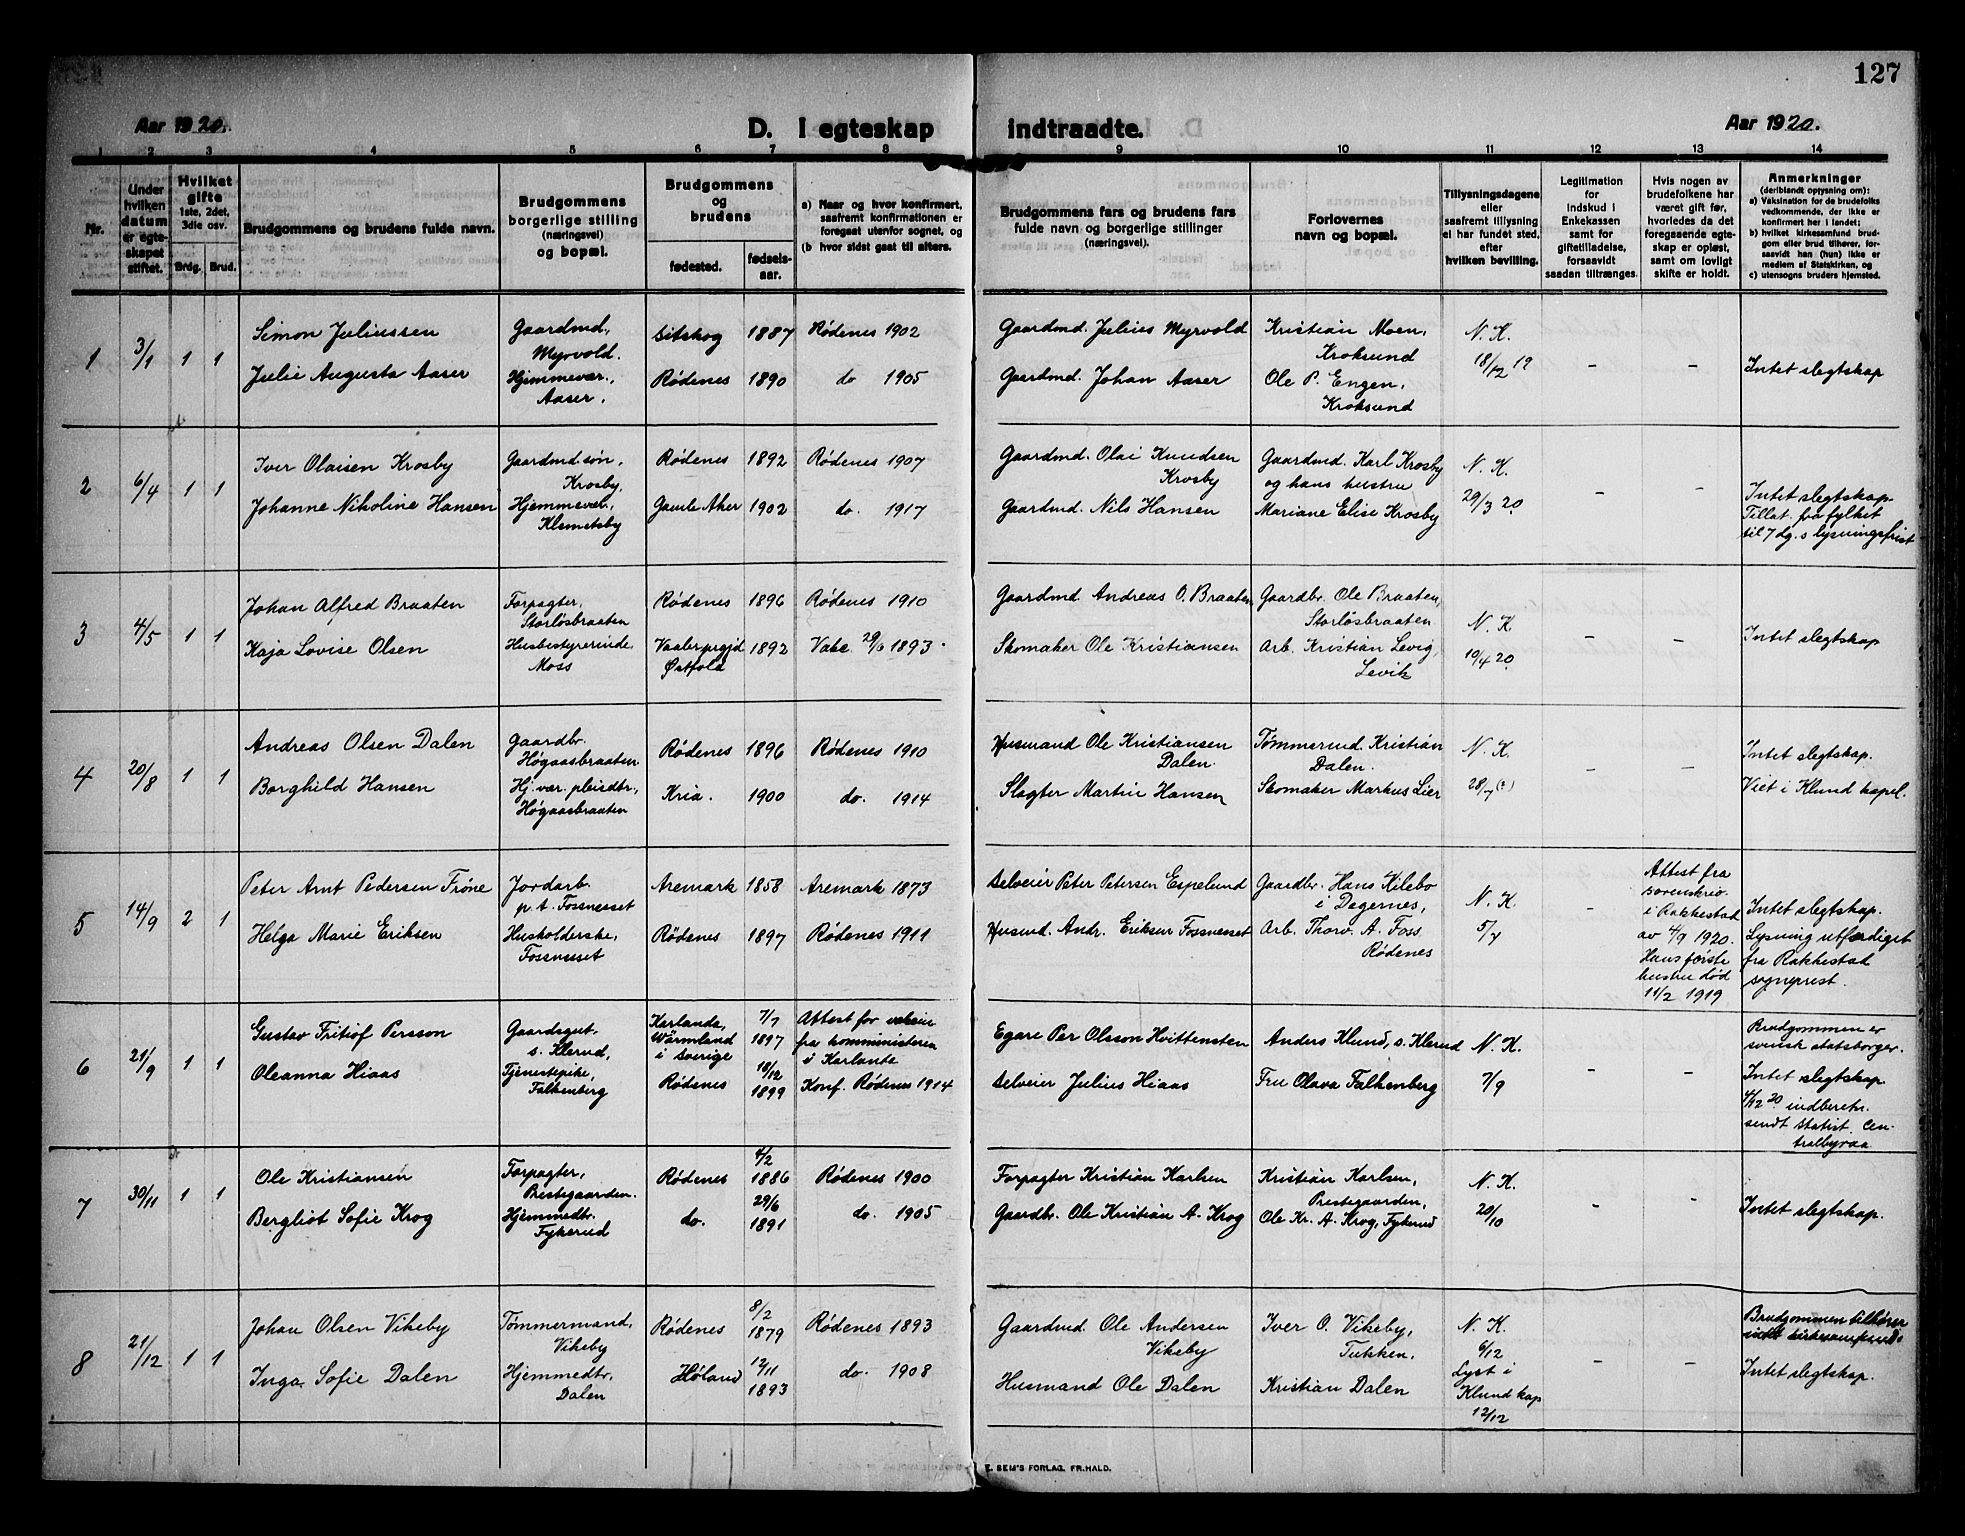 127
Aar 1920.
D. I egteskap indtraadte.
Aar 1920.
1 2 3 4 5 6 7 8 9 10 11 12 13 14
Nr.
Under hvilken datum er egteskapet stiftet.
Hvilket gifte 1ste, 2det, 3die osv.
Brdg. Brud.
Brudgommens og brudens fulde navn.
Brudgommens borgerlige stilling (næringsvei) og bopæl.
Brudgommens og brudens
fødested.
fødselsaar.
a) Naar og hvor konfirmert, saafremt konfirmationen er foregaat utenfor sognet, og
(b hvor sidst gaat til alters.
Brudgommens fars og brudens fars fulde navn og borgerlige stillinger (næringsvei).
Forlovernes navn og bopæl.
Tillysningsdagene eller saafremt tillysning ei har fundet sted, efter hvilken bevilling.
Legitimation for indskud i Enkekassen samt for giftetilladelse, forsaavidt saadan tiltrænges.
Hvis nogen av brudefolkene har været gift før, hvorledes da det foregaaende egteskap er opløst, samt om lovligt skifte er holdt.
Anmerkninger (deriblandt optysning om): a) Vaksination for de brudefolks vedkommende, der ikke er konfirmert her i landet; b) hvilket kirkesamfund brudgom eller brud tilhører, forsaavidt han (hun) ikke er medlem af Statskirken, og c) utensogns bruders hjemsted.
1 3/1 1 1
Simon Juliussen
Gaardmd., Myrvold.
Sitskog 1887 Rødenes 1902
Gaardmd. Julius Myrvold
Kristian Moen, Kroksund
Julie Augusta Aaser
Hjemmevær., Aaser.
Rødenes 1890 do 1905
Gaardmd. Johan Aaser
Ole P. Engen, Kroksund
N. K. 18/12 19
- -
Intet slegtskap
2 6/4 1 1
Iver Olaisen Krosby
Gaardmd.søn, Krosby,
Rødenes 1892 Rødenes 1907
Gaardmd. Olai Knudsen Krosby
Gaardmd. Karl Krosby og hans hustru
Johanne Nikoline Hansen
Hjemmevær., Klemetsby
Gamle Aker 1902 do. 1917
Gaardmd. Nils Hansen
Mariane Elise Krosby
N. K. 29/3 20
- -
Intet slegtskap.
Tillat. fra fylket
til 7 dg.s lysningsfrist
3 4/5 1 1
Johan Alfred Braaten
Forpagter, Storløsbraaten
Rødenes 1896 Rødenes 1910
Gaardmd. Andreas O. Braaten
Gaardbr. Ole Braaten, Storløsbraaten
Kaja Lovise Olsen
Husbestyrerinde Moss
Østfold 1892 29/6 1893.
Skomaker Ole Kristiansen
Arb. Kristian Levig, Levik
N. K 19/4 20
- -
Intet slegtskap
4 20/8 1 1
Andreas Olsen Dalen
Gaardbr. Høgaasbraaten
Rødenes 1896 Rødenes 1910
Husmand Ole Kristiansen Dalen.
Tømmermd. Kristian Dalen.
Borghild Hansen
Hj.vær. pleiedtr, Høgaasbraaten
Kria. 1900 do. 1914
Slagter Martin Hansen
Skomaker Markus Lier
N. K. 28/7
- -
Intet slegtskap.
Viet i Klund kapel.
5 14/9 2 1
Peter Arnt Pedersen Frøne
Jordarb. p.t. Fossnesset
Aremark 1858 Aremark 1873
Selveier Peter Petersen Espelund
Gaardbr. Hans Kilebo i Degernes,
Helga Marie Eriksen
Husholderske, Fossnesset
Rødenes 1897 Rødenes 1911
Husmd. Andr. Eriksen Fossnesset
Arb. Thorv. A. Foss Rødenes
N. K. 5/7
-
Attest fra sorenskriv. i Rakkestad av 4/9 1920. Hans første hustru død 11/2 1919
Intet slegtskap.
Lysning utfærdiget
fra Rakkestad
sogneprest.
6 21/9 1 1
Gustav Fritiof Persson
Gaardsgut s. Klerud,
Karlanda, Wärmland i Sverige 7/7 1897
Attest for vaksin fra komministeren i Karlanda
Egare Per Olsson Hvittensten
Anders Klund, s. Klerud
Oleanna Hiaas
Tjenestepike, Falkenberg
Rødenes 18/12 1899 Konf. Rødenes 1914
Selveier Julius Hiaas
Fru Olava Falkenberg
N. K. 7/9
- -
Brudgommen er
svensk statsborger.
Intet slegtskap
4/12 20 indberetn.
sendt Statist. Cen-
tralbyraa
7 30/11 1 1
Ole Kristiansen
Forpagter, Prestegaarden.
Rødenes 4/2 1886 Rødenes 1900
Forpagter Kristian Karlsen
Kristian Karlsen, Prestegaarden,
Bergliot Sofie Krog
Hjemmedtr. Fykerud
do. 29/6 1891 do. 1905
Gaardbr. Ole Kristian A. Krog
Ole Kr. A. Krog, Fykerud
N. K. 20/10
- -
Intet slegtskap.
8 21/12 1 1
Johan Olsen Vikeby
Tømmermand, Vikeby
Rødenes 8/2 1879 Rødenes 1893
Gaardmd. Ole Andersen Vikeby
Iver O. Vikeby, Tukken.
Inga Sofie Dalen
Hjemmedtr. Dalen
Høland 12/11 1893 do. 1908
Husmand Ole Dalen
Kristian Dalen
N. K. 6/12 Lyst i Klund kap 12/12
- -
Brudgommen tilhører
intet kirkesamfund.
Intet slegtskap.
E. SEM'S FORLAG, FR.HALD.